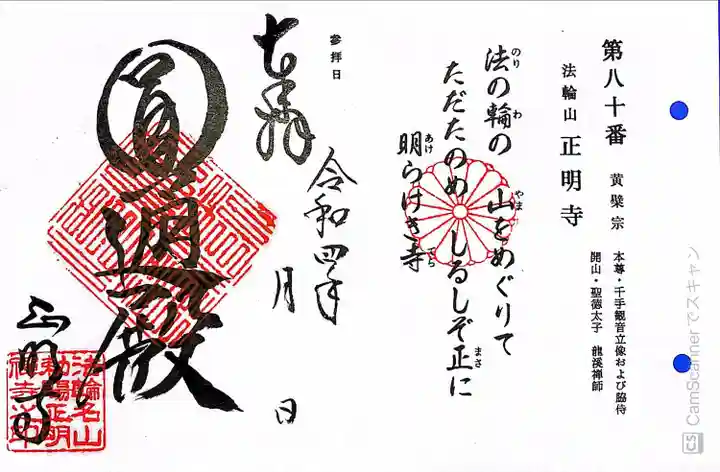 第八十番 黄檗宗
法輪山 正明寺
本尊・千手観音立像および脇侍
開山・聖徳太子 龍溪禅師
法の輪の 山をめぐりて
のり わ やま
ただたのめ しるしぞ正に
まさ
明らけき寺
あけ でら
参拝日
令和四年 月 日
奉拝
圓通殿
正明寺
法輪名山
勅賜正明
禅寺之印
CS CamScannerでスキャン